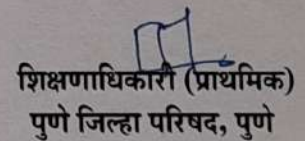 शिक्षणाधिकारी (प्राथमिक)
पुणे जिल्हा परिषद, पुणे